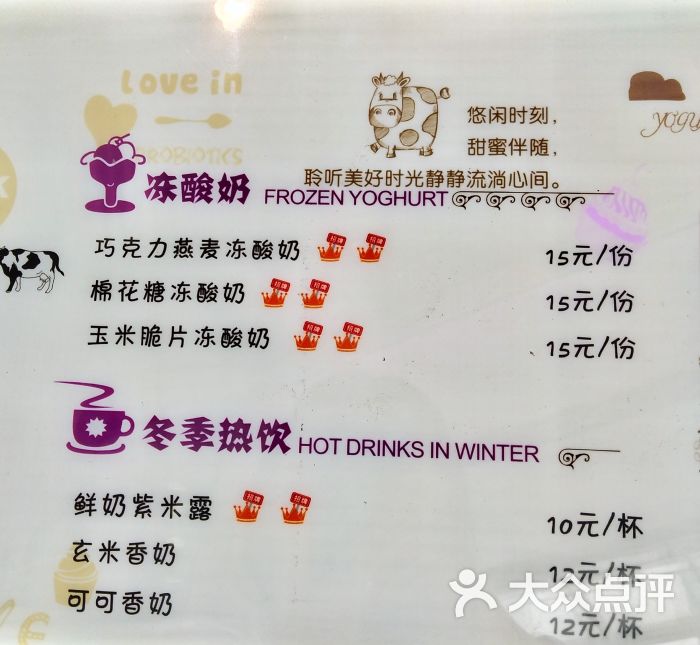 Love in
PROBIOTICS
悠闲时刻，
甜蜜伴随，
聆听美好时光静静流淌心间。
冻酸奶 FROZEN YOGHURT
巧克力燕麦冻酸奶 招牌 招牌 15元/份
棉花糖冻酸奶 招牌 招牌 15元/份
玉米脆片冻酸奶 招牌 招牌 15元/份
冬季热饮 HOT DRINKS IN WINTER
鲜奶紫米露 招牌 招牌 10元/杯
玄米香奶 12元/杯
可可香奶 12元/杯
大众点评